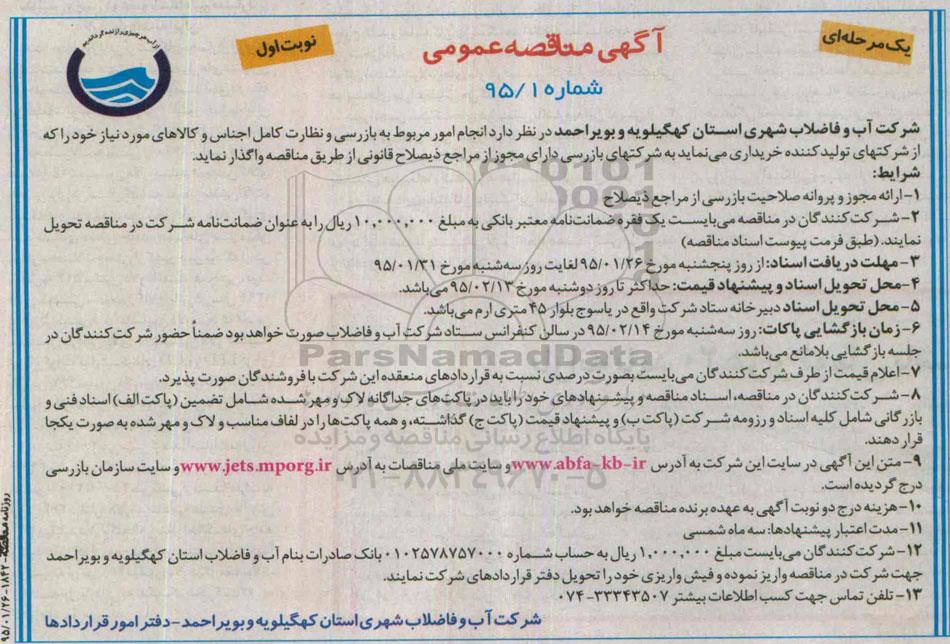 یک مرحله‌ای
آگهی مناقصه عمومی
نوبت اول
از آب هر چیزی را زنده گرداندیم
شماره ۹۵/۱
شرکت آب و فاضلاب شهری استان کهگیلویه و بویراحمد در نظر دارد انجام امور مربوط به بازرسی و نظارت کامل اجناس و کالاهای مورد نیاز خود را که
از شرکتهای تولیدکننده خریداری می‌نماید به شرکتهای بازرسی دارای مجوز از مراجع ذیصلاح قانونی از طریق مناقصه واگذار نماید.
شرایط:
۱-ارائه مجوز و پروانه صلاحیت بازرسی از مراجع ذیصلاح
۲-شرکت‌کنندگان در مناقصه می‌بایست یک فقره ضمانت‌نامه معتبر بانکی به مبلغ ۱۰,۰۰۰,۰۰۰ ریال را به عنوان ضمانت‌نامه شرکت در مناقصه تحویل
نمایند. (طبق فرمت پیوست اسناد مناقصه)
۳-مهلت دریافت اسناد: از روز پنجشنبه مورخ ۹۵/۰۱/۲۶ لغایت روز سه‌شنبه مورخ ۹۵/۰۱/۳۱
۴-محل تحویل اسناد و پیشنهاد قیمت: حداکثر تا روز دوشنبه مورخ ۹۵/۰۲/۱۳ می‌باشد.
۵-محل تحویل اسناد دبیرخانه ستاد شرکت واقع در یاسوج بلوار ۴۵ متری ارم می‌باشد.
۶-زمان بازگشایی پاکات: روز سه‌شنبه مورخ ۹۵/۰۲/۱۴ در سالن کنفرانس ستاد شرکت آب و فاضلاب صورت خواهد بود ضمناً حضور شرکت‌کنندگان در
جلسه بازگشایی بلامانع می‌باشد.
۷-اعلام قیمت از طرف شرکت‌کنندگان می‌بایست بصورت درصدی نسبت به قراردادهای منعقده این شرکت با فروشندگان صورت پذیرد.
۸-شرکت‌کنندگان در مناقصه، اسناد مناقصه و پیشنهادهای خود را باید در پاکت‌های جداگانه لاک و مهر شده شامل تضمین (پاکت الف) اسناد فنی و
بازرگانی شامل کلیه اسناد و رزومه شرکت (پاکت ب) و پیشنهاد قیمت (پاکت ج) گذاشته، و همه پاکت‌ها را در لفاف مناسب و لاک و مهر شده به صورت یکجا
قرار دهند.
۹-متن این آگهی در سایت این شرکت به آدرس www.abfa-kb-ir و سایت ملی مناقصات به آدرس www.jets.mporg.ir و سایت سازمان بازرسی
درج گردیده است.
۱۰-هزینه درج دو نوبت آگهی به عهده برنده مناقصه خواهد بود.
۱۱-مدت اعتبار پیشنهادها: سه ماه شمسی
۱۲-شرکت‌کنندگان می‌بایست مبلغ ۱,۰۰۰,۰۰۰ ریال به حساب شماره ۰۱۰۲۵۷۸۷۵۷۰۰۰ بانک صادرات بنام آب و فاضلاب استان کهگیلویه و بویراحمد
جهت شرکت در مناقصه واریز نموده و فیش واریزی خود را تحویل دفتر قراردادهای شرکت نمایند.
۱۳-تلفن تماس جهت کسب اطلاعات بیشتر ۳۳۳۴۳۵۰۷-۰۷۴
شرکت آب و فاضلاب شهری استان کهگیلویه و بویراحمد-دفتر امور قراردادها
روزنامه مناقصه ۱۸۴۲-۹۵/۰۱/۲۶
ParsNamadData
پایگاه اطلاع رسانی مناقصه و مزایده
۰۲۱-۸۸۳۴۹۶۷۰-۵